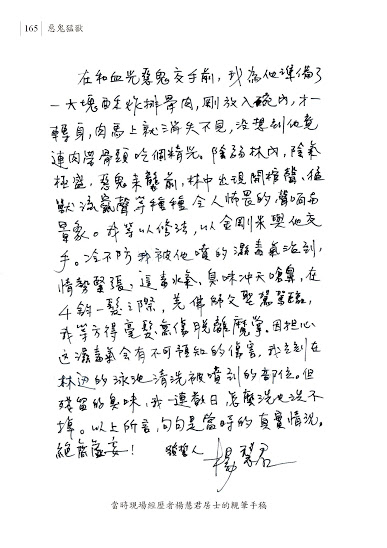 165 惡鬼猛獸
在和血光惡鬼交手前，我為他準備了
一大塊酥炸排骨肉，剛放入碗內，才一
轉身，肉馬上就消失不見，沒想到他竟
連肉帶骨頭吃個精光。陰弱林內，陰氣
極盛，惡鬼來襲前，林中出現開棺聲、猛
獸流竄聲等種種令人怖畏的聲响与
景象。我等以修法，以金剛米與他交
手。冷不防我被他噴的濕毒氣沾到，
情勢緊張，這毒水氣，臭味冲天嗆鼻，在
千鈞一髮之際，羌佛師父聖駕蒞臨，
我等方得毫髮無傷脫離魔掌，因担心
這濕毒氣会有不可預知的傷害，我立刻在
林边的泳池清洗被噴到的部位。但
殘留的臭味，我一連數日，怎麼洗也洗不
掉。以上所言，句句是當時的真實情況，
絕無虛妄！
楊慧君
當時現場經歷者楊慧君居士的親筆手稿